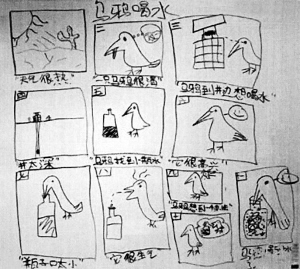 乌鸦喝水
天气很热
一只乌鸦很渴
乌鸦到井边想喝水
井太深
乌鸦找到小瓶水
它很高兴
瓶子口太小
它很生气